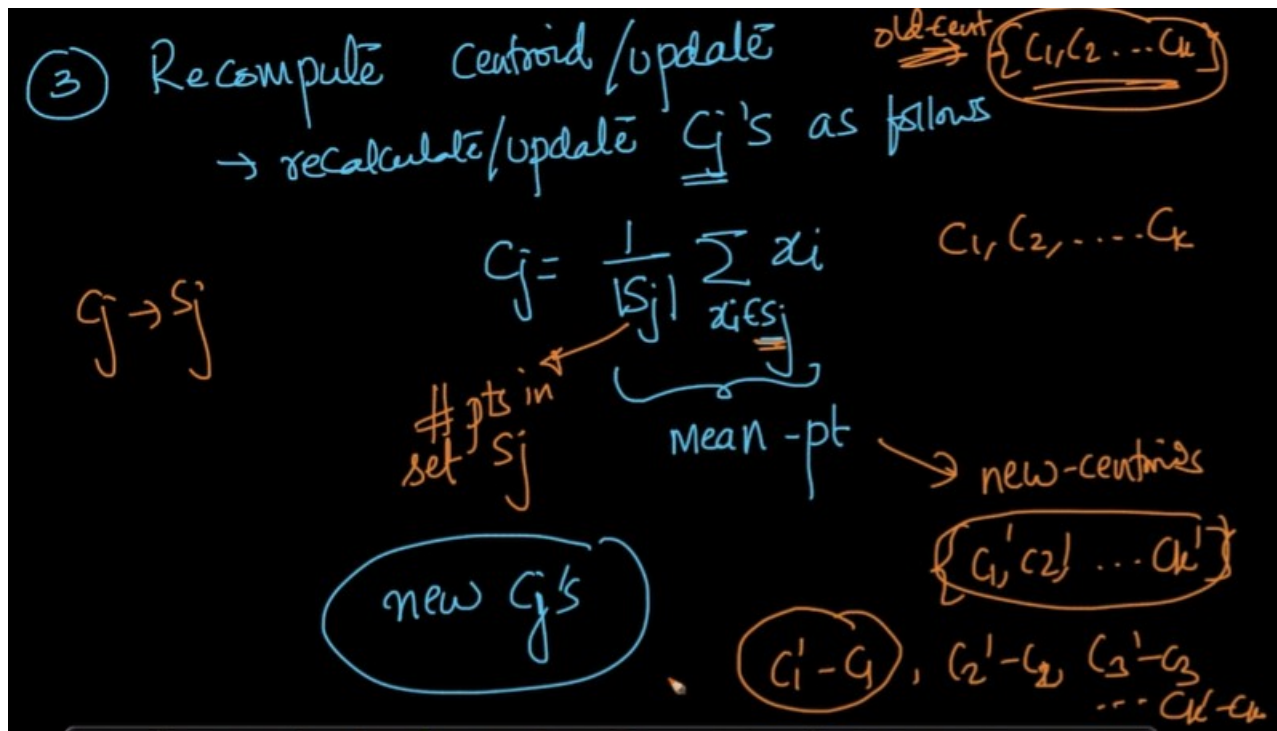 ③ Recompute Centroid/update
old-cent {C1, C2 ... Ck}
→ recalculate/update Cj's as follows
C1, C2, ..... Ck
Cj → Sj
Cj = 1/|Sj| Σ xi
xi∈Sj
# pts in
set Sj
Mean-pt
new-centriods
{C1', C2', ... Ck'}
new Cj's
C1'-C1, C2'-C2, C3'-C3
... Ck'-Ck